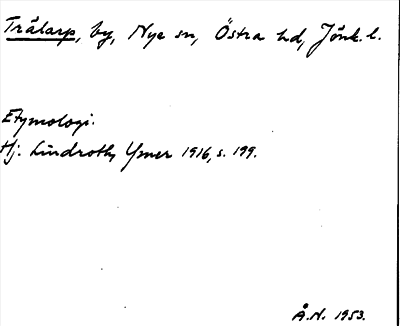 Trälarp, by, Nye sn, Östra hd, Jönk. l.
Etymologi.
Hj. Lindroth, Ymer 1916, s. 199.
Å.N. 1953.